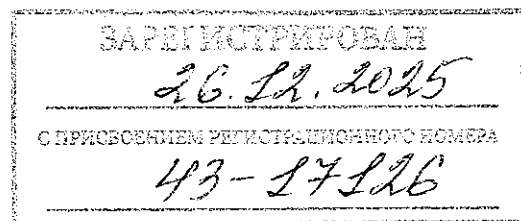 ЗАРЕГИСТРИРОВАН
26.12.2025
С ПРИСВОЕНИЕМ РЕГИСТРАЦИОННОГО НОМЕРА
43-17126